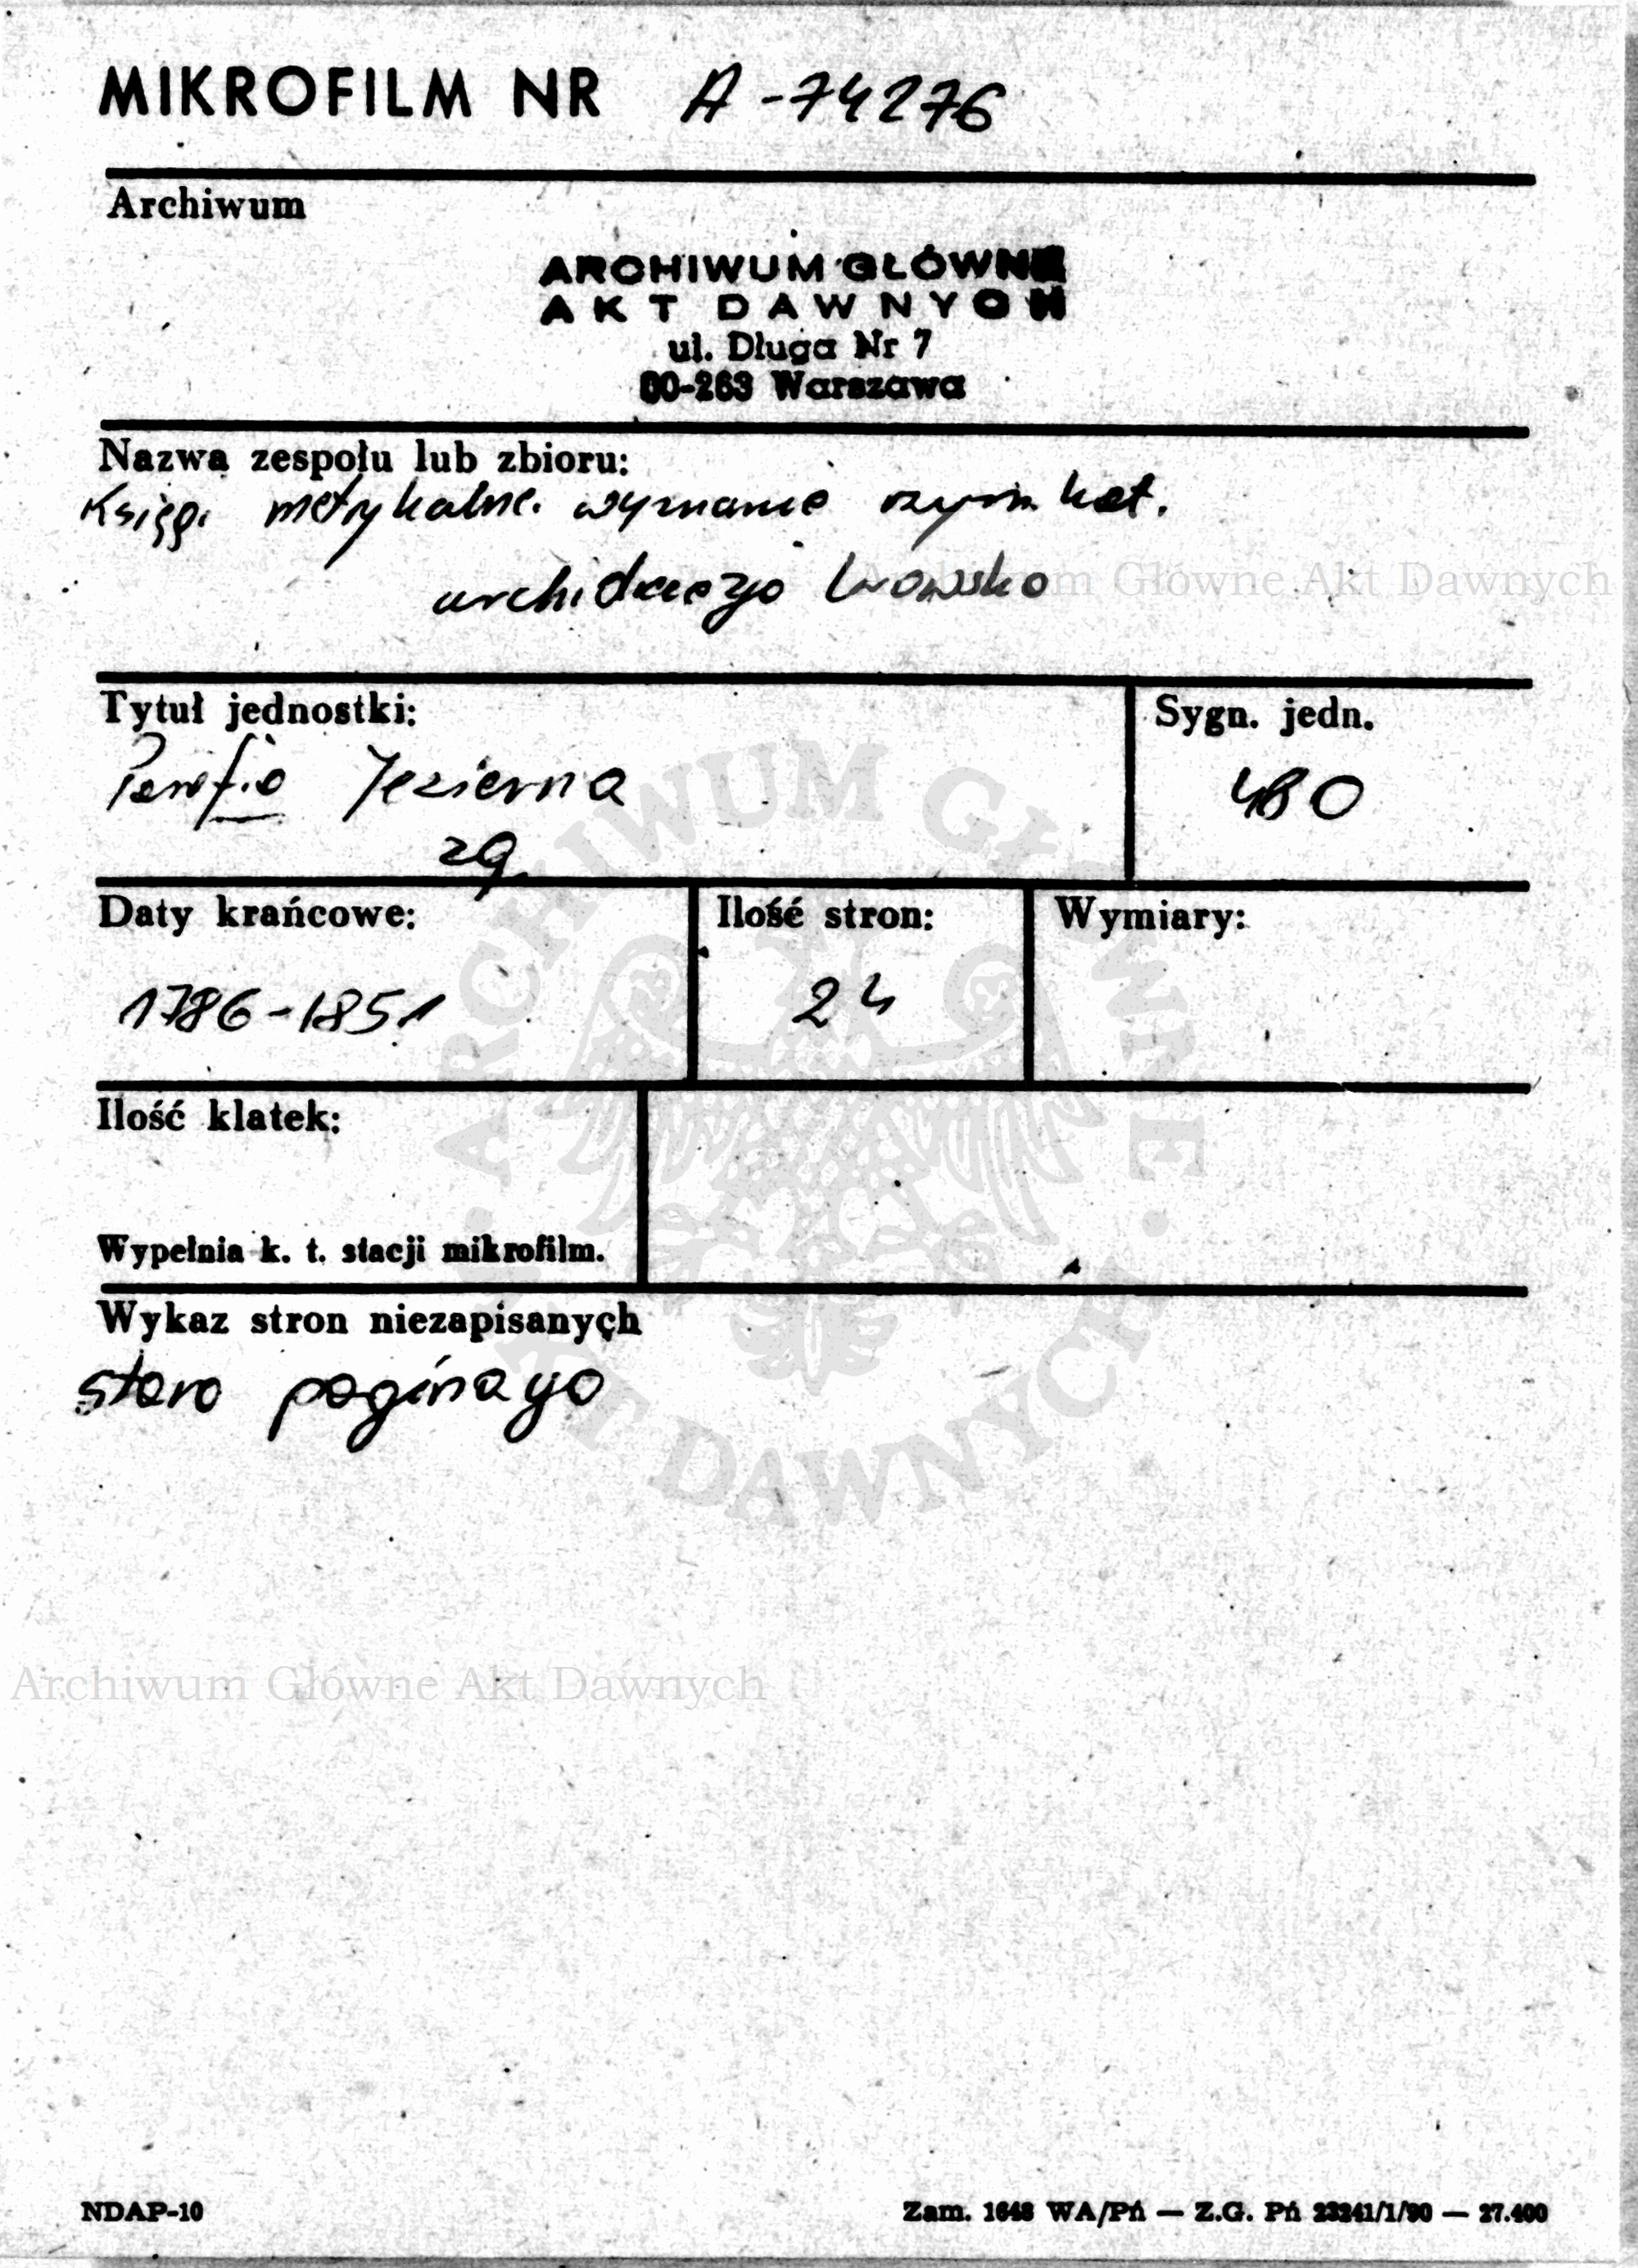 MIKROFILM NR A-74276
Archiwum
ARCHIWUM GŁÓWNE
AKT DAWNYCH
ul. Długa Nr 7
00-263 Warszawa
Nazwa zespołu lub zbioru:
Księgi metrykalne wyznanie rzym kat.
archidiecezja Lwowska
Archiwum Główne Akt Dawnych
Tytuł jednostki:
Sygn. jedn.
Parafia Jezierna
480
zg.
Daty krańcowe:
Ilość stron:
Wymiary:
1786-1851
24
Ilość klatek:
Wypełnia k. t. stacji mikrofilm.
Wykaz stron niezapisanych
stara paginacja
ARCHIWUM GŁÓWNE AKT DAWNYCH
Archiwum Główne Akt Dawnych
NDAP-10
Zam. 1648 WA/Pń — Z.G. Pń 23241/1/90 — 27.400